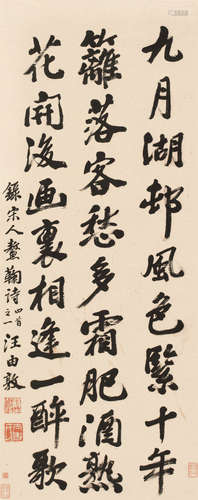 九月湖邨風色緊十年
籬落客愁多霜肥酒熟
花開後画裏相逢一醉歌
錄宋人鰲鞠詩四首之一汪由敦